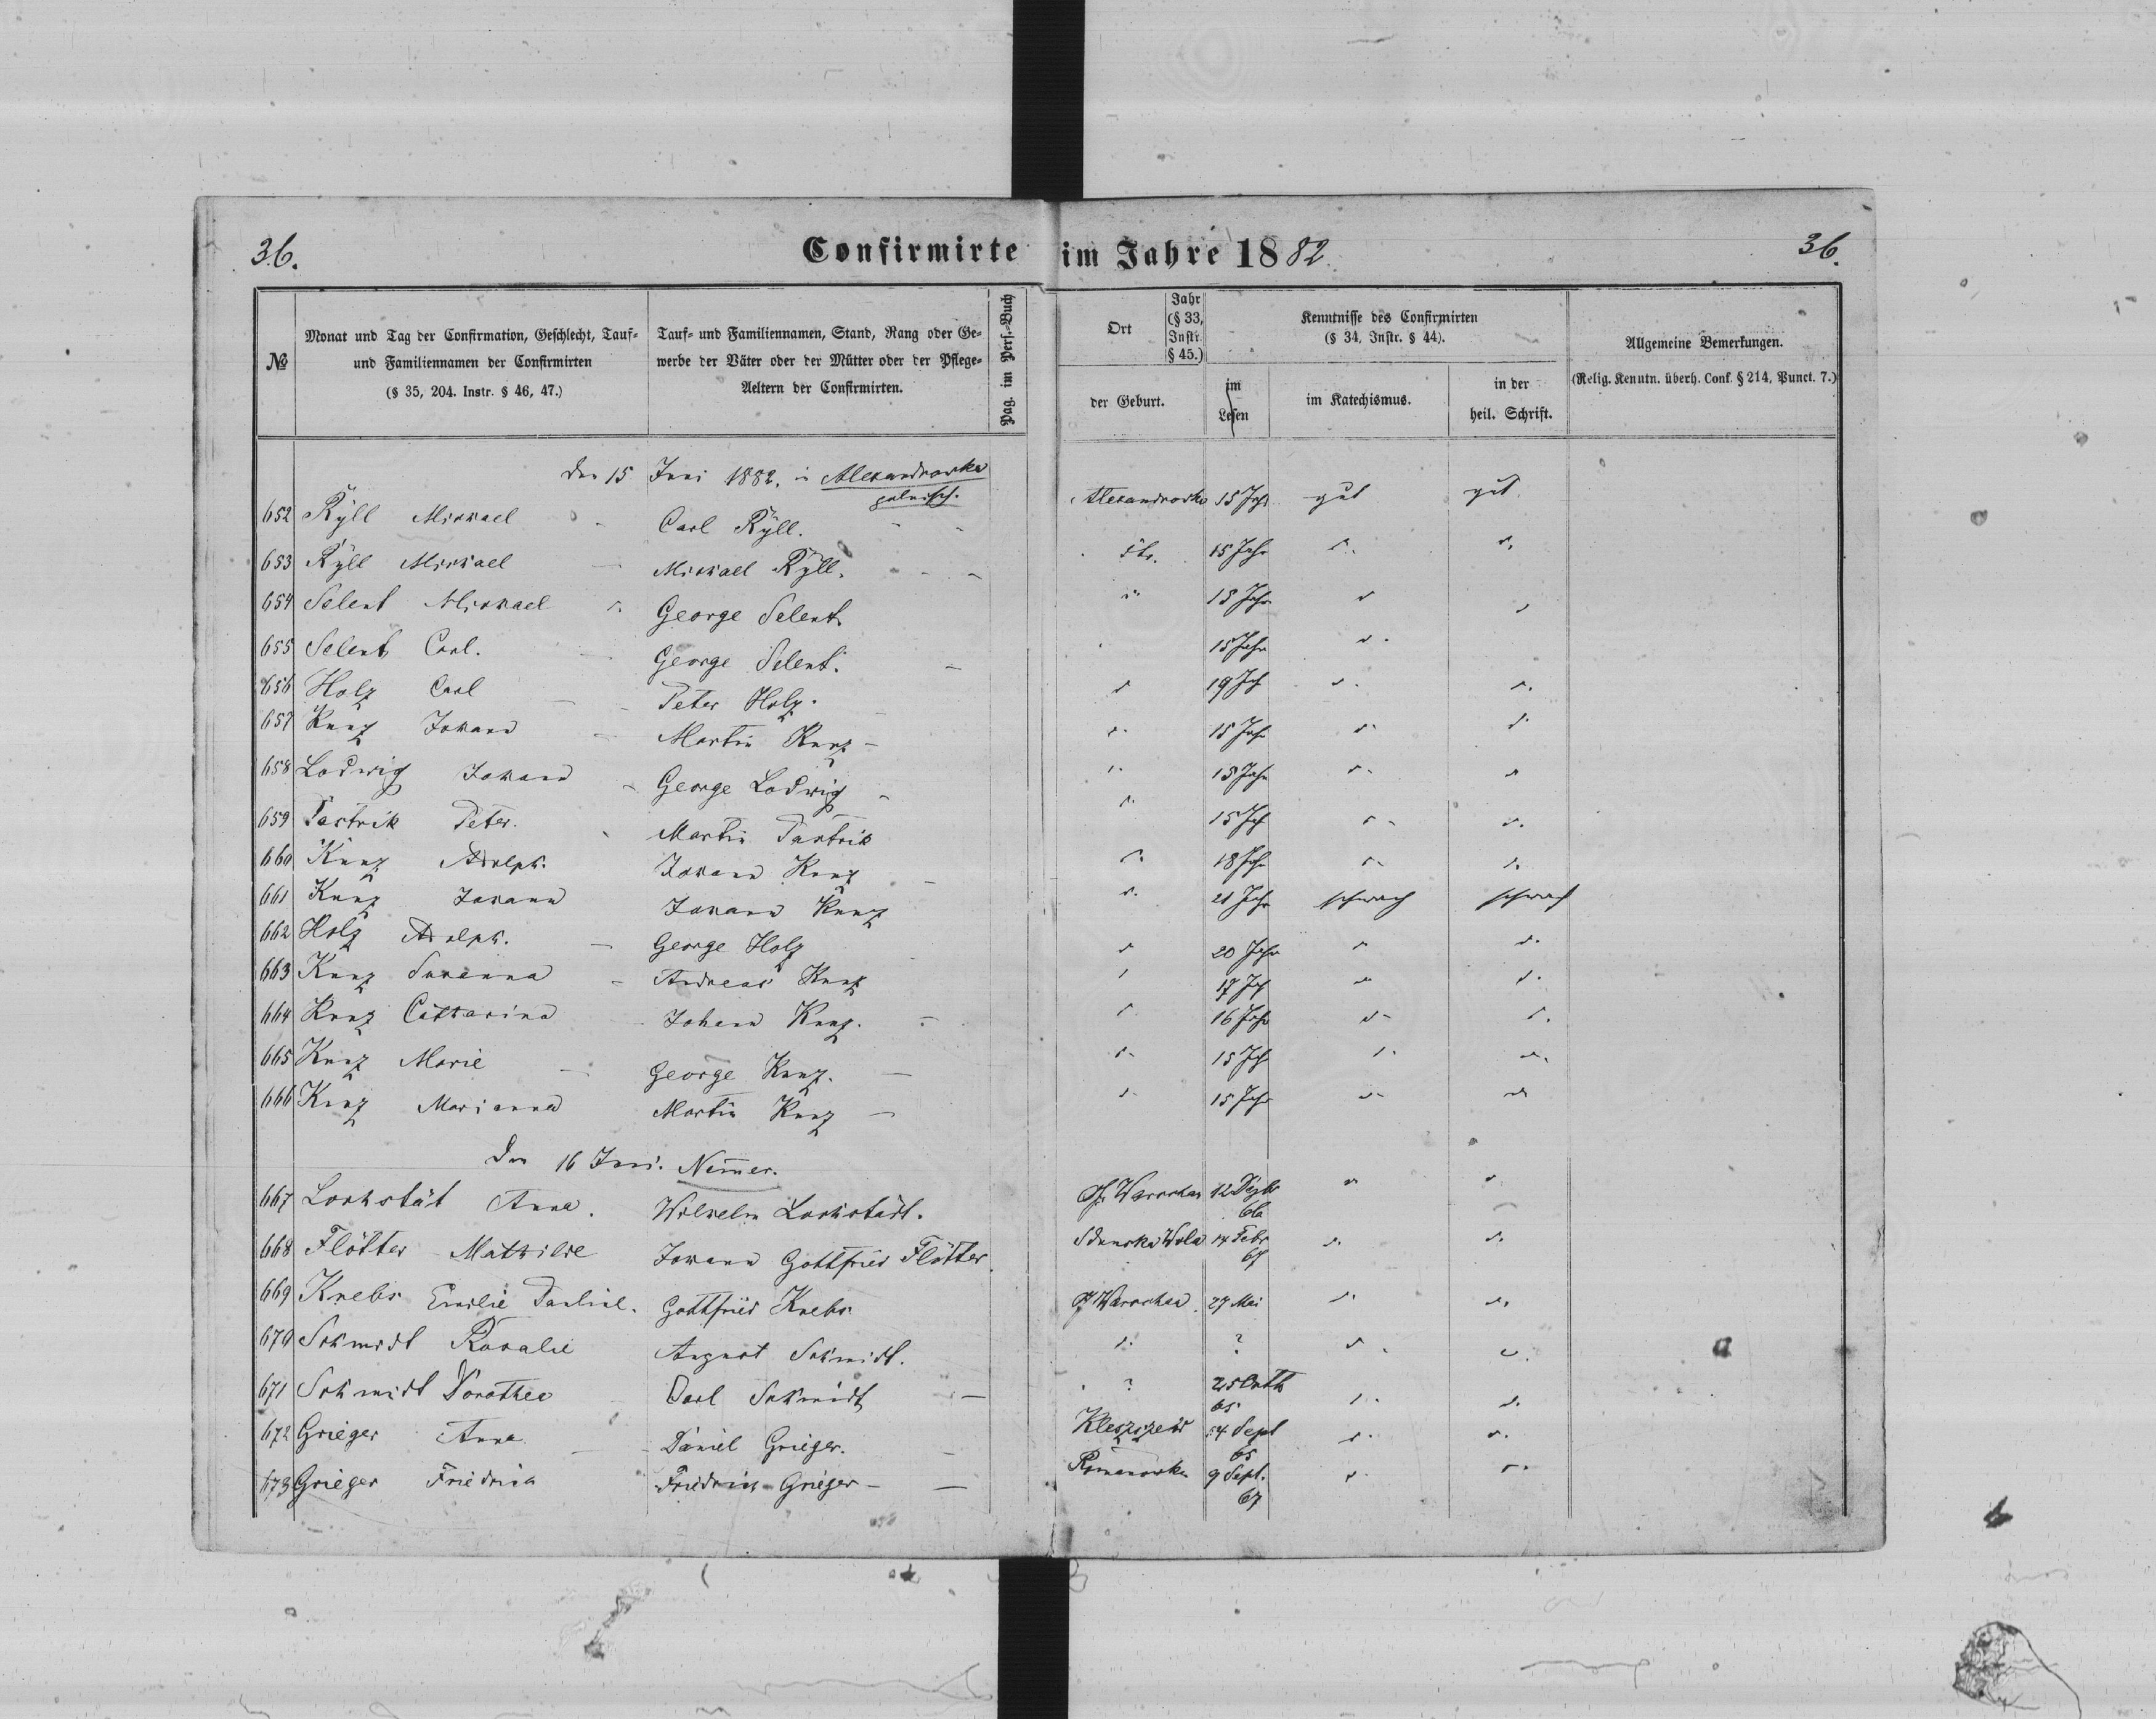 36.
Confirmirte im Jahre 1882
36.
№
Monat und Tag der Confirmation, Geschlecht, Tauf-
und Familiennamen der Confirmirten
(§ 35, 204. Instr. § 46, 47.)
Tauf- und Familiennamen, Stand, Rang oder Ge-
werbe der Väter oder der Mütter oder der Pflege-
Aeltern der Confirmirten.
Pag. im Pers.-Buch
Ort
Jahr
(§ 33,
Instr.
§ 45.)
der Geburt.
Kenntnisse des Confirmirten
(§ 34, Instr. § 44).
im
Lesen
im Katechismus.
in der
heil. Schrift.
Allgemeine Bemerkungen.
(Relig. Kenntn. überh. Conf. § 214, Punct. 7.)
Den 15 Juni 1882. in Alexandrowka
polnisch.
652 Ryll Michael Carl Ryll. Alexandrowka 15 Jahr gut gut.
653 Ryll Michael Michael Ryll. 15 Jahr
654 Selent Michael George Selent 15 Jahr
655 Selent Carl. George Selent. 15 Jahr
656 Holz Carl Peter Holz. 19 Jah
657 Kunz Johann Martin Kunz 15 Jahr
658 Lodwig Johann George Lodwig 15 Jahr
659 Tastrik Peter. Martin Tastrik 15 Jah
660 Kunz Adolph. Johann Kunz 18 Jahr
661 Kunz Johann Johann Kunz 21 Jahr schwach schwach
662 Holz Adolph. George Holz 20 Jahr
663 Kunz Susanna Andreas Kunz 17 Jah
664 Kunz Catharina Johann Kunz. 16 Jahr
665 Kunz Marie George Kunz. 15 Jah
666 Kunz Marianna Martin Kunz 15 Jahr
Den 16 Juni. Nemer.
667 Lochstät Anna. Wilhelm Lochstädt. Warschau 12 Dezbr
66
668 Flötter Mathilde Johann Gottfried Flötter. Sdunska Wola 14 Febr
67
669 Krebs Emilie Pauline. Gottfried Krebs Warschau. 27 Mai
670 Schmidt Rosalie August Schmidt. ?
671 Schmidt Dorothea Carl Schmidt ? 25 Octb
65
672 Grieger Anna Daniel Grieger. Kleszczów 24 Sept
65
673 Grieger Friedrich Friedrich Grieger Romanowka 9 Sept.
67